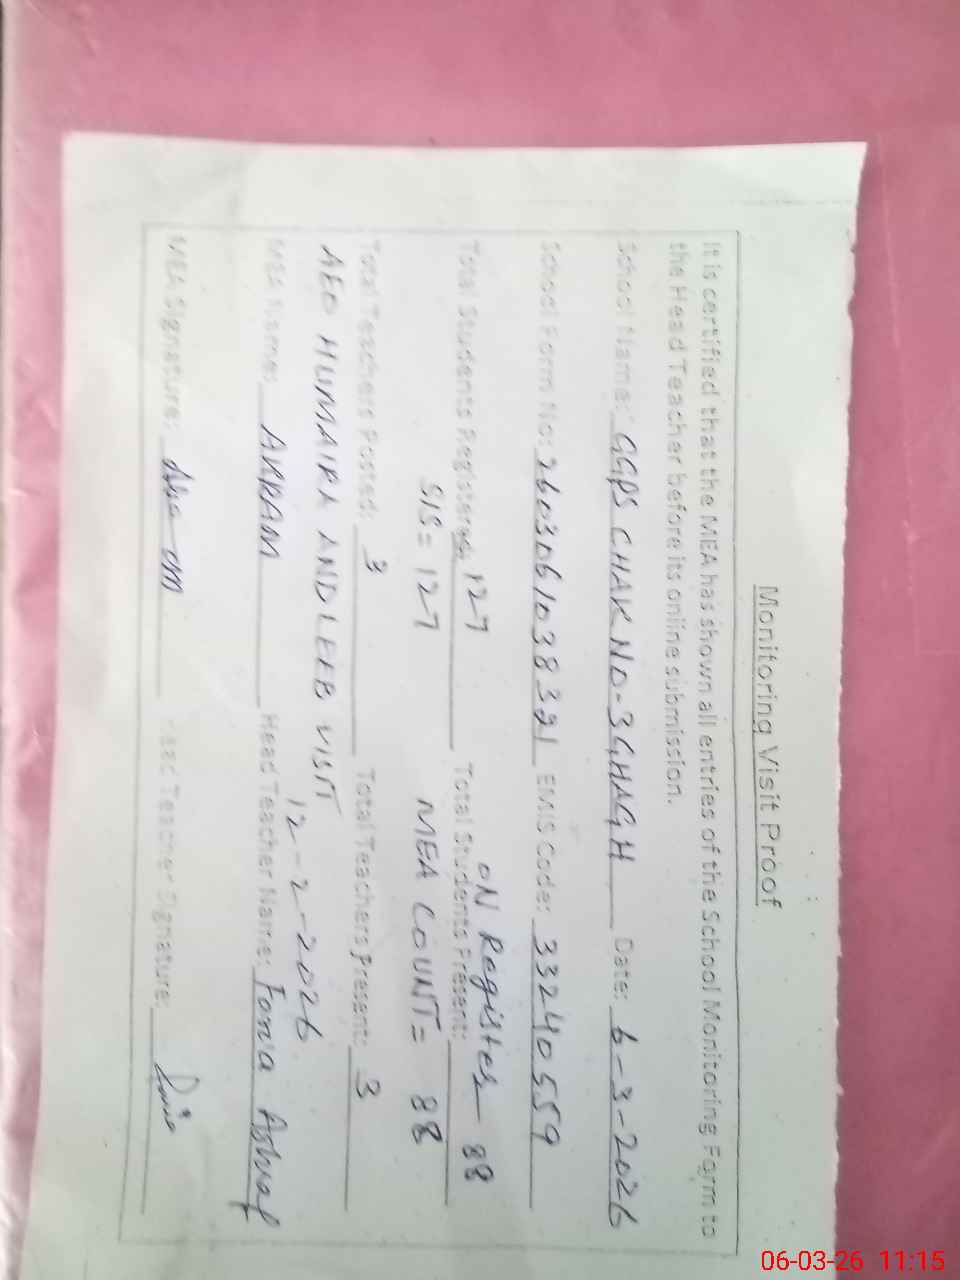 Monitoring Visit Proof
It is certified that the MEA has shown all entries of the School Monitoring Form to
the Head Teacher before its online submission.
School Name: GGPS CHAK NO-3GHAGH Date: 6-3-2026
School Form No: 2603061038321 EMIS Code: 33240559
Total Students Registered: 127 Total Students Present: ON Register 88
SIS = 127 MEA COUNT = 88
Total Teachers Posted: 3 Total Teachers Present: 3
AEO HUMAIRA ANDLEEB VISIT 12-2-2026
MEA Name: AKRAM Head Teacher Name: Ashraf
MEA Signature: Head Teacher Signature:
06-03-26 11:15